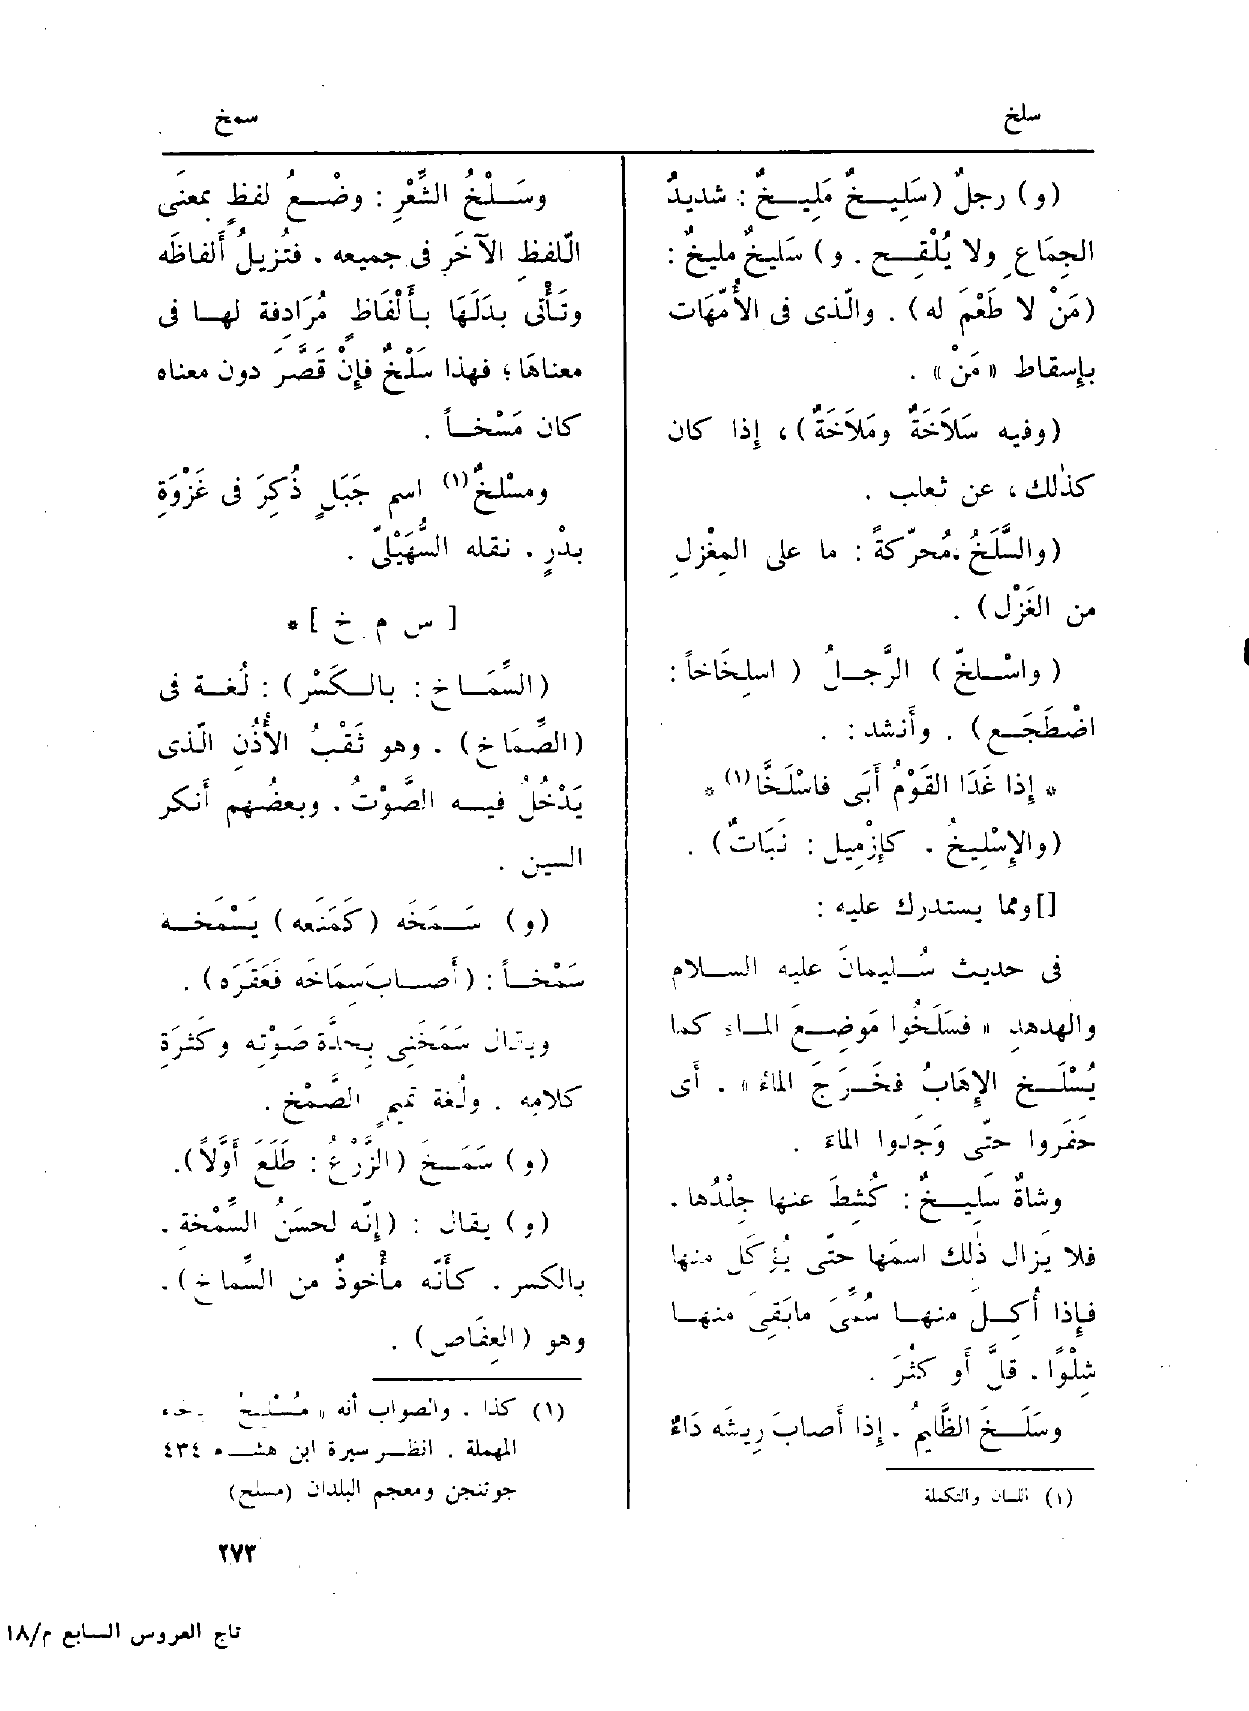 سلخ
سمخ
(و) رجلٌ (سَلِيخٌ مَلِيخٌ : شديدُ
الجِمَاعِ ولا يُلْقِح . و) سَلِيخٌ مليخٌ :
(مَنْ لا طَعْمَ له) . والّذى فى الأُمّهَات
بإسقاط « مَنْ » .
(وفيه سَلاَخَةٌ ومَلاَخَةٌ) ، إذا كان
كذٰلك ، عن ثعلب .
(والسَّلَخُ .مُحرّكةً : ما على المِغْزلِ
من الغَزْل) .
(واسْلَخّ) الرَّجلُ (اسلِخَاخاً :
اضْطَجَع) . وأنشد :
* إذا غَدَا القَوْمُ أَبَى فاسْلَخَّا(١) *
(والإِسْلِيخُ . كإِزْمِيل : نَبَاتٌ) .
[] ومما يستدرك عليه :
فى حديث سُليمانَ عليه السلام
والهدهدِ « فسَلَخُوا مَوضِعَ الماءِ كما
يُسْلَخ الإِهَابُ فخَرَجَ الماءُ » . أَى
حَفَروا حتّى وَجَدوا الماءَ .
وشاةٌ سَلِيخٌ : كُشِطَ عنها جِلْدُها .
فلا يَزال ذٰلك اسمَها حتّى يُؤكَل منها
فإذا أُكِل منها سُمِّىَ مابَقِىَ منها
شِلْوًا . قلَّ أو كثُرَ .
وسَلَخَ الظَّلِيمُ . إذا أصابَ رِيشَه دَاءٌ
(١) اللسان والتكملة
وسَلْخُ الشِّعْرِ : وضْعُ لفظٍ بمعنَى
الّلفظِ الآخَرِ فى جميعه . فتُزِيلُ أَلفاظَه
وتَأْتِى بدَلَهَا بأَلْفَاظٍ مُرَادِفة لها فى
معناهَا ؛ فهذا سَلْخٌ فإنْ قَصَّرَ دون معناه
كان مَسْخاً .
ومسْلخٌ(١) اسم جَبَلٍ ذُكِرَ فى غَزْوَةِ
بدْرٍ . نقله السُّهَيْلىّ .
[ س م خ ] *
(السِّمَاخ : بالكَسْر) : لُغة فى
(الصِّمَاخ) . وهو ثَقْبُ الأُذُنِ الّذى
يَدْخُلُ فيه الصَّوْتُ . وبعضُهم أَنكر
السين .
(و) سَمَخَه (كَمَنَعه) يَسْمَخه
سَمْخاً : (أَصابَ سِمَاخَه فعَقَرَه) .
ويقال سَمَخَنِى بحِدَّة صَوْتِه وكَثْرَةِ
كلامِه . ولُغة تميمٍ الصَّمْخ .
(و) سَمَخَ (الزَّرْعُ : طَلَعَ أَوَّلاً) .
(و) يقال : (إنّه لحسَنُ السِّمْخَة .
بالكسر . كأَنّه مأْخوذٌ من السِّماخ) .
وهو (العِفَاص) .
(١) كذا . والصواب أنه « مُسْلِحٌ
المهملة . انظر سيرة ابن هشام ٤٣٤
جوتنجن ومعجم البلدان (مسلح)
٢٧٣
تاج العروس السابع م/١٨